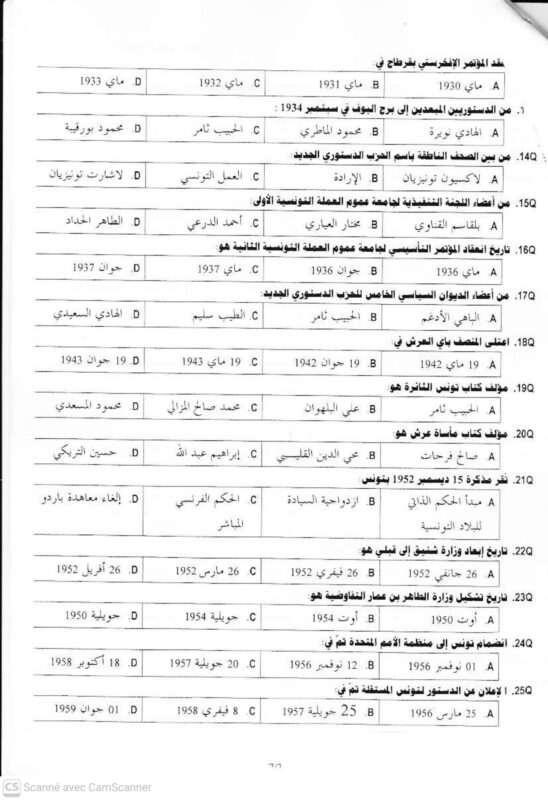 عقد المؤتمر الإفخرستي بقرطاج في:
A. ماي 1930 B. ماي 1931 C. ماي 1932 D. ماي 1933
1. من الدستوريين المبعدين إلى برج البوف في سبتمبر 1934 :
A. الهادي نويرة B. محمود الماطري C. الحبيب ثامر D. محمود بورقيبة
14Q. من بين الصحف الناطقة باسم الحزب الدستوري الجديد:
A. لاكسيون تونيزيان B. الإرادة C. العمل التونسي D. لاشارت تونيزيان
15Q. من أعضاء اللجنة التنفيذية لجامعة عموم العملة التونسية الأولى:
A. بلقاسم القناوي B. مختار العياري C. أحمد الدرعي D. الطاهر الحداد
16Q. تاريخ انعقاد المؤتمر التأسيسي لجامعة عموم العملة التونسية الثانية هو:
A. ماي 1936 B. جوان 1936 C. ماي 1937 D. جوان 1937
17Q. من أعضاء الديوان السياسي الخامس للحزب الدستوري الجديد:
A. الباهي الأدغم B. الحبيب ثامر C. الطيب سليم D. الهادي السعيدي
18Q. اعتلى المنصف باي العرش في:
A. 19 ماي 1942 B. 19 جوان 1942 C. 19 ماي 1943 D. 19 جوان 1943
19Q. مؤلف كتاب تونس الثائرة هو:
A. الحبيب ثامر B. علي البلهوان C. محمد صالح المزالي D. محمود المسعدي
20Q. مؤلف كتاب مأساة عرش هو:
A. صالح فرحات B. محي الدين القليبي C. إبراهيم عبد الله D. حسين التريكي
21Q. تقر مذكرة 15 ديسمبر 1952 بتونس:
A. مبدأ الحكم الذاتي B. ازدواجية السيادة C. الحكم الفرنسي D. إلغاء معاهدة باردو
للبلاد التونسية المباشر
22Q. تاريخ إبعاد وزارة شنيق إلى قبلي هو:
A. 26 جانفي 1952 B. 26 فيفري 1952 C. 26 مارس 1952 D. 26 أفريل 1952
23Q. تاريخ تشكيل وزارة الطاهر بن عمار التفاوضية هو:
A. أوت 1950 B. أوت 1954 C. جويلية 1954 D. جويلية 1950
24Q. انضمام تونس إلى منظمة الأمم المتحدة تمّ في:
A. 01 نوفمبر 1956 B. 12 نوفمبر 1956 C. 20 جويلية 1957 D. 18 أكتوبر 1958
25Q. الإعلان عن الدستور لتونس المستقلة تمّ في:
A. 25 مارس 1956 B. 25 جويلية 1957 C. 8 فيفري 1958 D. 01 جوان 1959
CS Scanné avec CamScanner